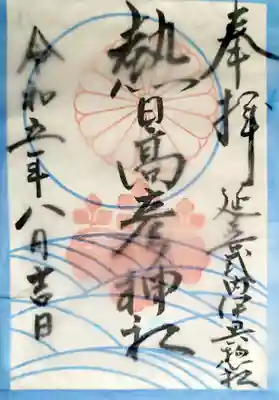 奉拝
延喜式内伊具
熱日高彦神社
令和五年八月吉日